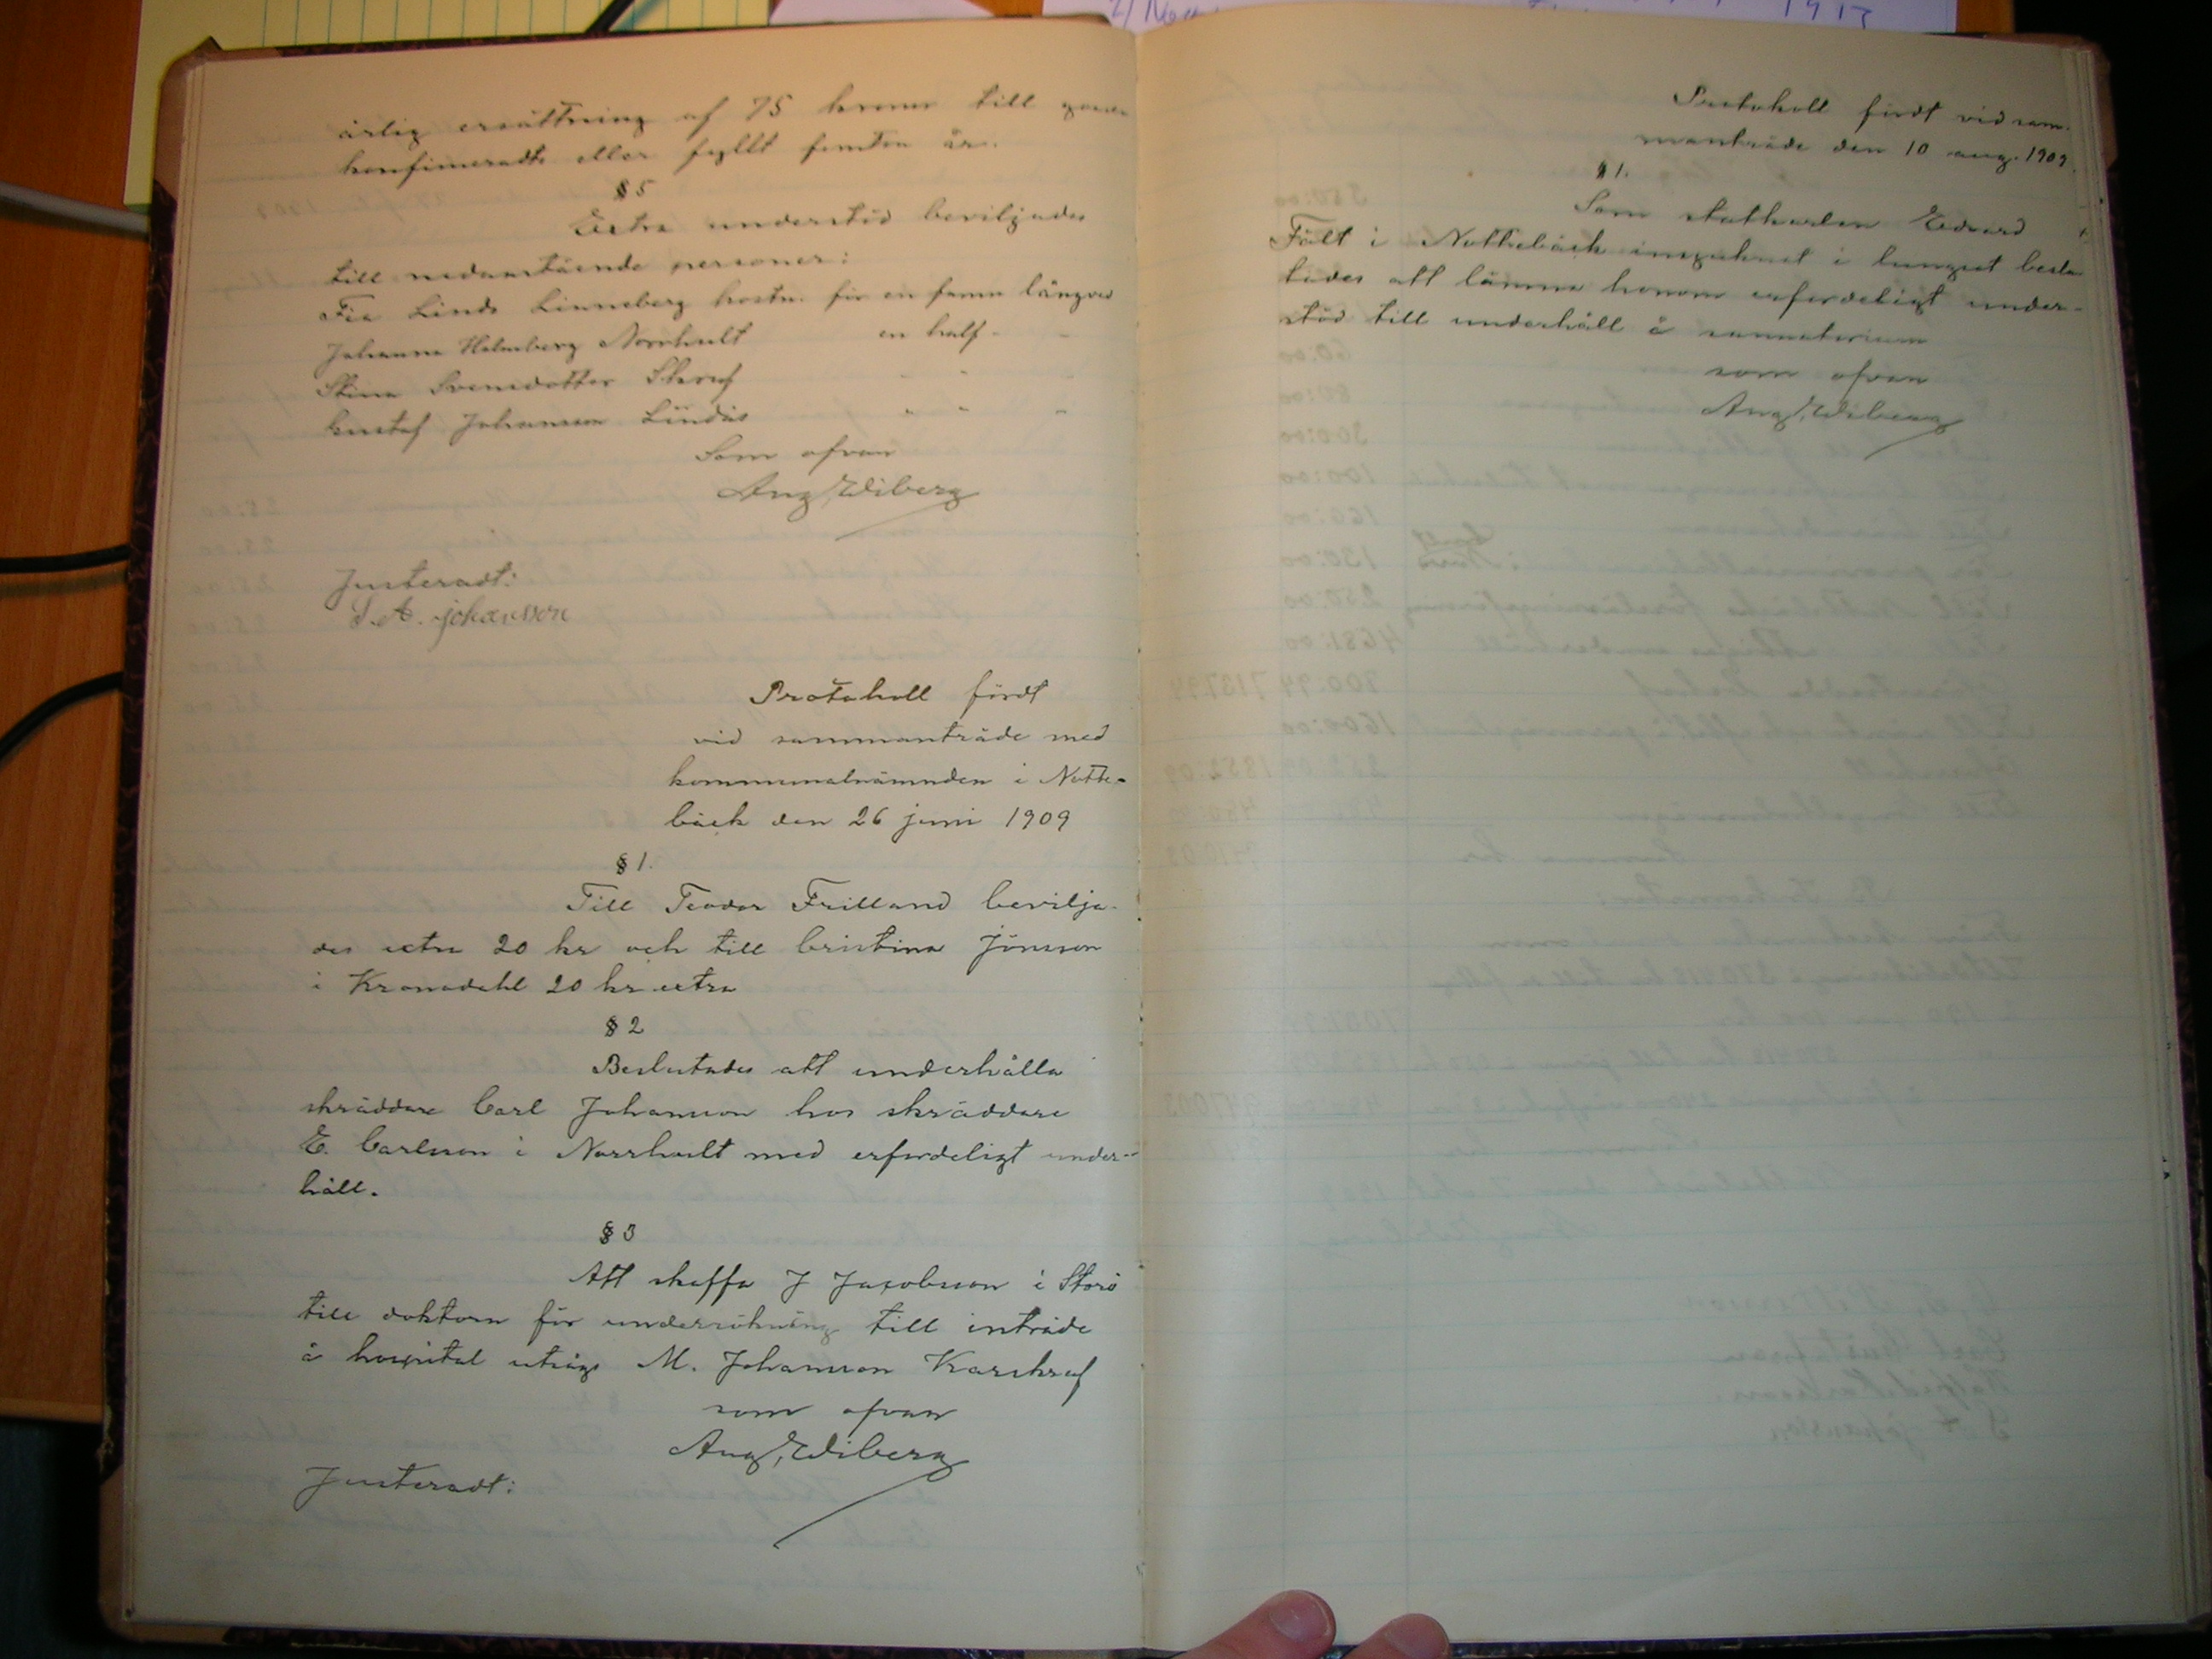 årlig ersättning af 75 kronor till
konfimeradt eller fyllt femton år.
§ 5
Extra understöd beviljades
till nedanstående personer:
Fia Lind Linneberg kostn. för en famn långved
Johanna Holmberg Norrhult en half - -
Stina Svensdotter Skruf - - -
Gustaf Johansson Lindås " " "
Som ofvan
Aug, Wiberg
Justeradt:
S. A. johansson
Protokoll fördt
vid sammanträde med
kommunalnämnden i Notte-
bäck den 26 juni 1909
§ 1.
Till Teodor Frilland bevilja-
des extra 20 kr och till Cristina Jönsson
i Kronadahl 20 kr extra
§ 2
Beslutades att underhålla
skräddare Carl Johansson hos skräddare
E. Carlsson i Norrhult med erforderligt under-
håll.
§ 3
Att skaffa J Jacobsson i
till doktorn för undersökning till inträde
å hospital utsågs M. Johansson
som ofvan
Aug, Wiberg
Justeradt:
Protokoll fördt vid sam-
manträde den 10 aug. 1909.
§ 1.
Som statkarlen Edvard
Fält i Nottebäck insjuknat i lungsot beslu
tades att lämna honom erforderligt under-
stöd till underhåll å sannatorium
som ofvan
Aug, Wiberg